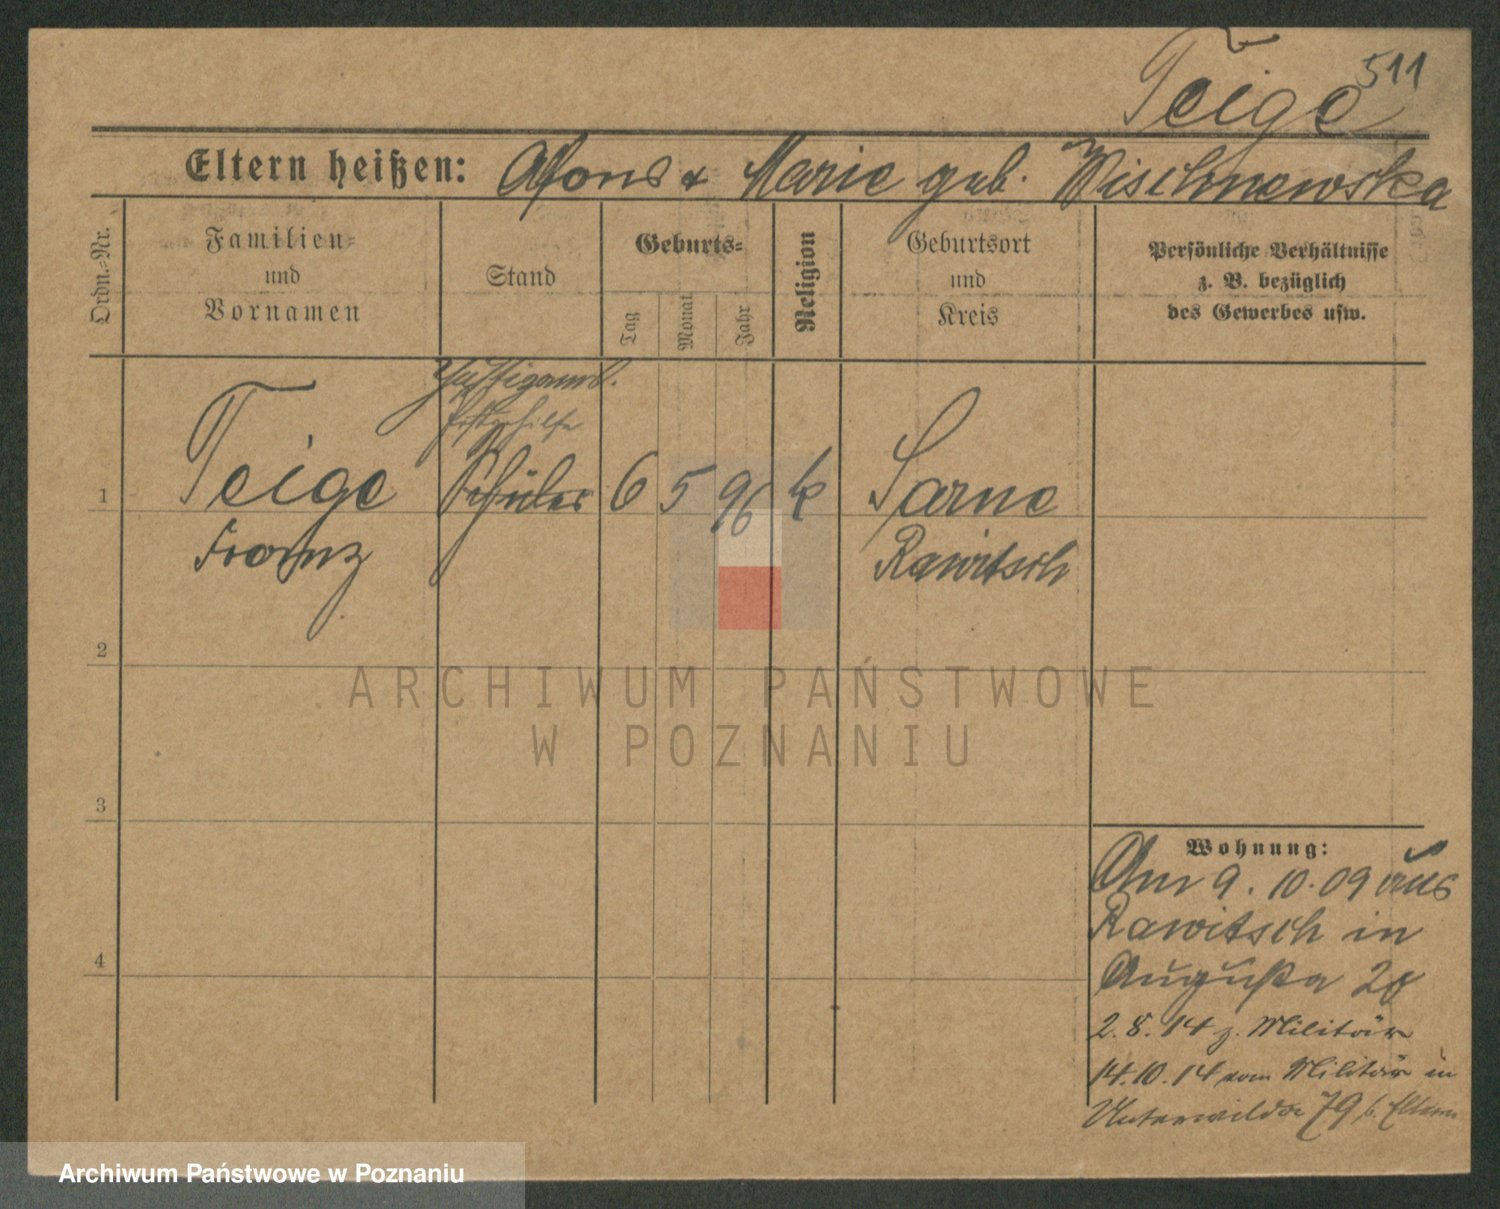 511
Teige
Eltern heißen: Alfons & Marie geb. Wischnewska
Ordn.-Nr.
Familien-
und
Vornamen
Stand
Geburts-
Tag
Monat
Jahr
Religion
Geburtsort
und
Kreis
Persönliche Verhältnisse
z. B. bezüglich
des Gewerbes usw.
1
Teige
Franz
Schüler
6 5 96 k
Sarne
Rawitsch
2
3
4
Wohnung:
Am 9. 10. 09 aus
Rawitsch in
Augusta 20
2. 8. 14 z. Militär
14. 10. 14 vom Militär in
79 b. Eltern
ARCHIWUM PAŃSTWOWE
W POZNANIU
Archiwum Państwowe w Poznaniu